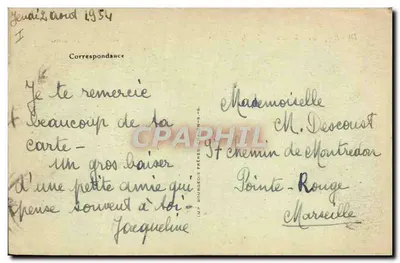 Jeudi 2 Août 1954
I
Correspondance
Je te remercie
beaucoup de ta
carte -
Un gros baiser
d'une petite amie qui
pense souvent à toi -
Jacqueline
Mademoiselle
M. Descoust
Chemin de Montredon
Pointe - Rouge
Marseille
CPARHIL